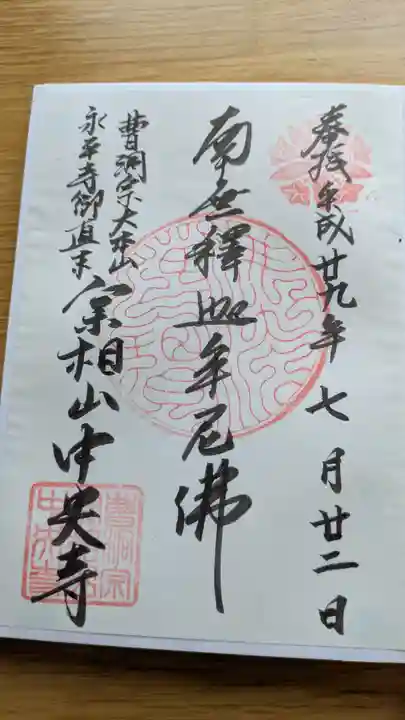 奉拝 平成廿九年七月廿二日
南無釋迦牟尼佛
曹洞宗大本山
永平寺御直末
宗相山中央寺
曹洞宗